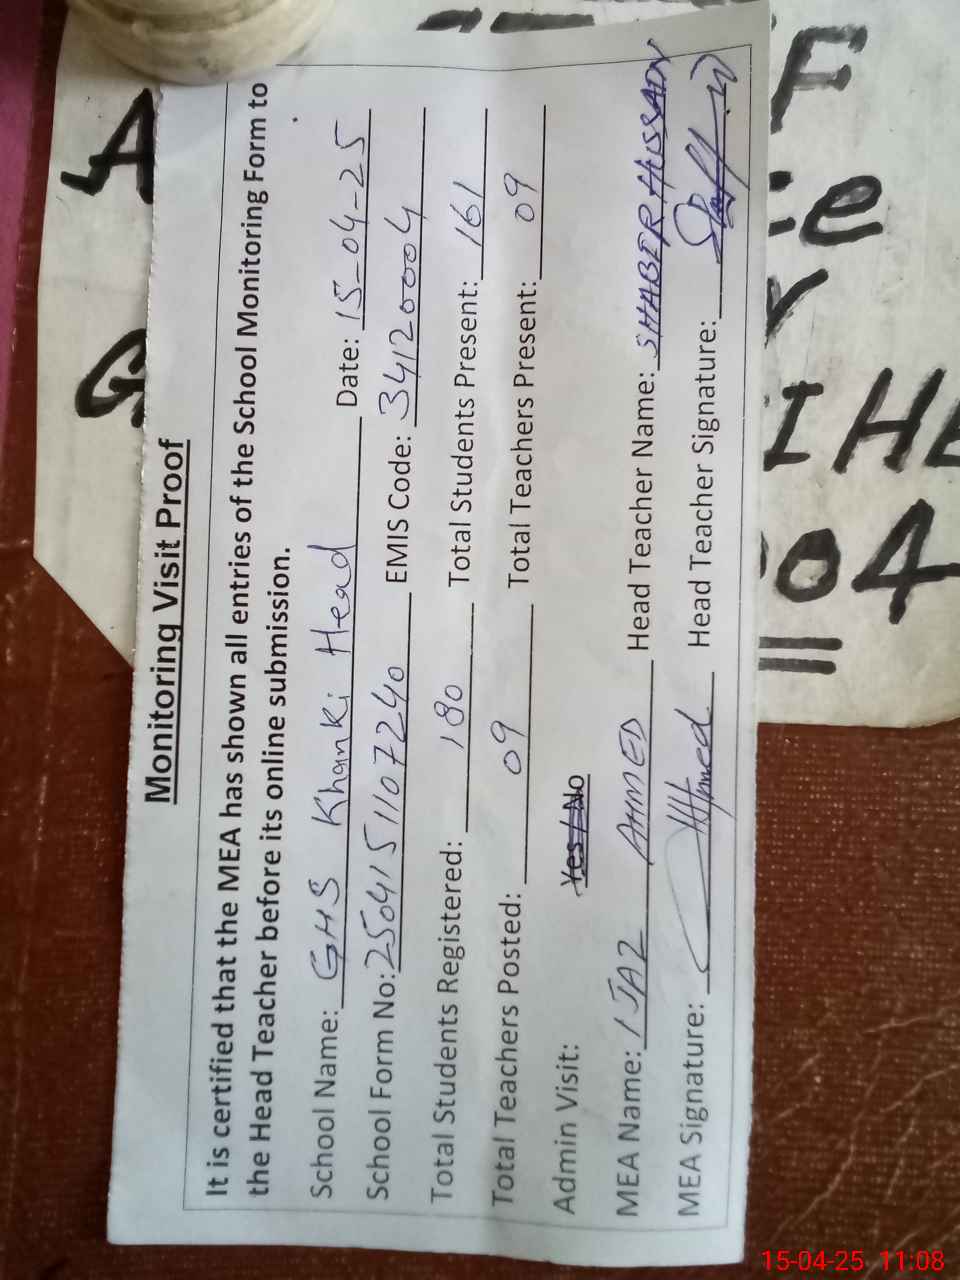 Monitoring Visit Proof
It is certified that the MEA has shown all entries of the School Monitoring Form to
the Head Teacher before its online submission.
School Name: GHS Khanki Head Date: 15-04-25
School Form No: 2504151107240 EMIS Code: 34120004
Total Students Registered: 180 Total Students Present: 161
Total Teachers Posted: 09 Total Teachers Present: 09
Admin Visit: Yes / No
MEA Name: IJAZ AHMED Head Teacher Name: SHABER HUSSAIN
MEA Signature: Ahmed Head Teacher Signature:
A
G
F
e
Y
IHE
04
15-04-25 11:08